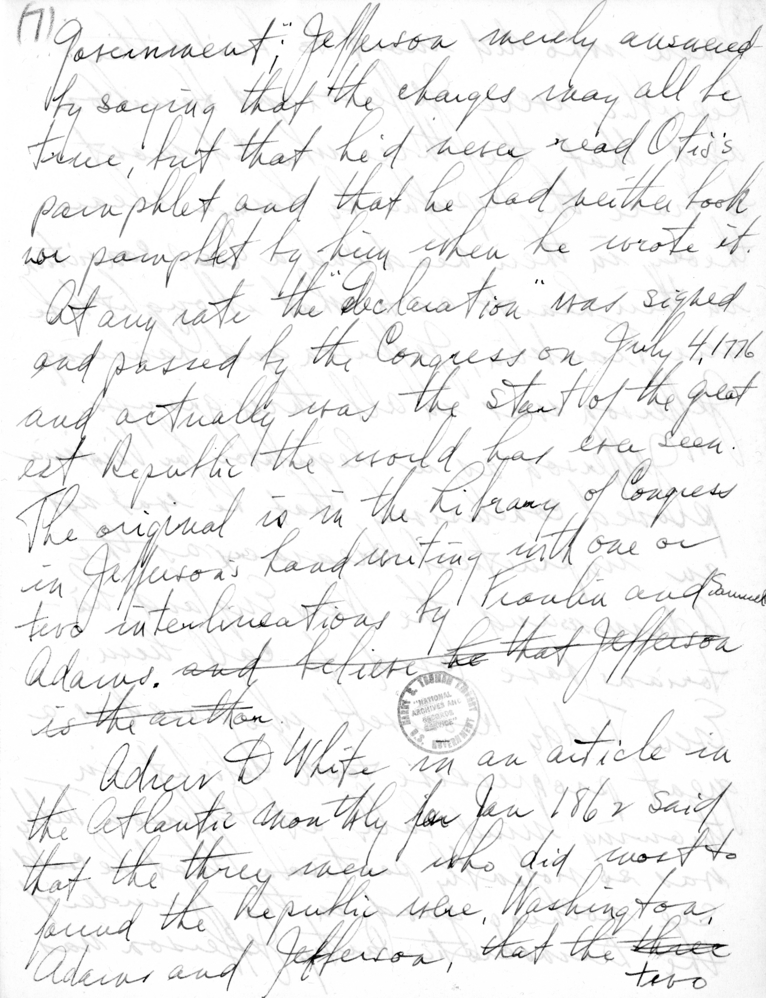 (7)
Government"; Jefferson merely answered
by saying that the charges may all be
true, but that he'd never read Otis's
pamphlet and that he had neither book
nor pamphlet by him when he wrote it.
At any rate the "Declaration" was signed
and passed by the Congress on July 4, 1776
and actually was the start of the great
est Republic the world has ever seen.
The original is in the Library of Congress
in Jefferson's handwriting with one or
two interlineations by Franlin and Samuel
Adams. and believe he that Jefferson
is the author.
HARRY S. TRUMAN LIBRARY
"NATIONAL
ARCHIVES AND
RECORDS
SERVICE"
U.S. GOVERNMENT
Adrew D White in an article in
the Atlantic monthly for Jan 1862 said
that the three men who did most to
found the Republic were, Washington,
Adams and Jefferson, that the three
two